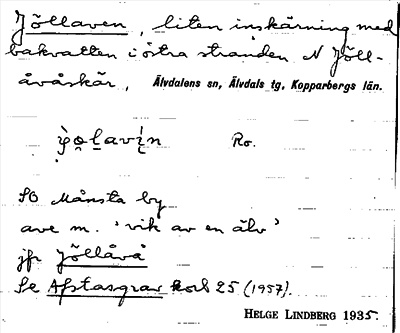 Jöllaven, liten inskärning med
bakvatten i östra stranden N Jöll-
åvåskär, Älvdalens sn, Älvdals tg, Kopparbergs län.
Ro.
SO Månsta by
ave m. 'vik av en älv'
jfr Jöllåvå
Se Åfstasgrav kort 25 (1957).
HELGE LINDBERG 1935.